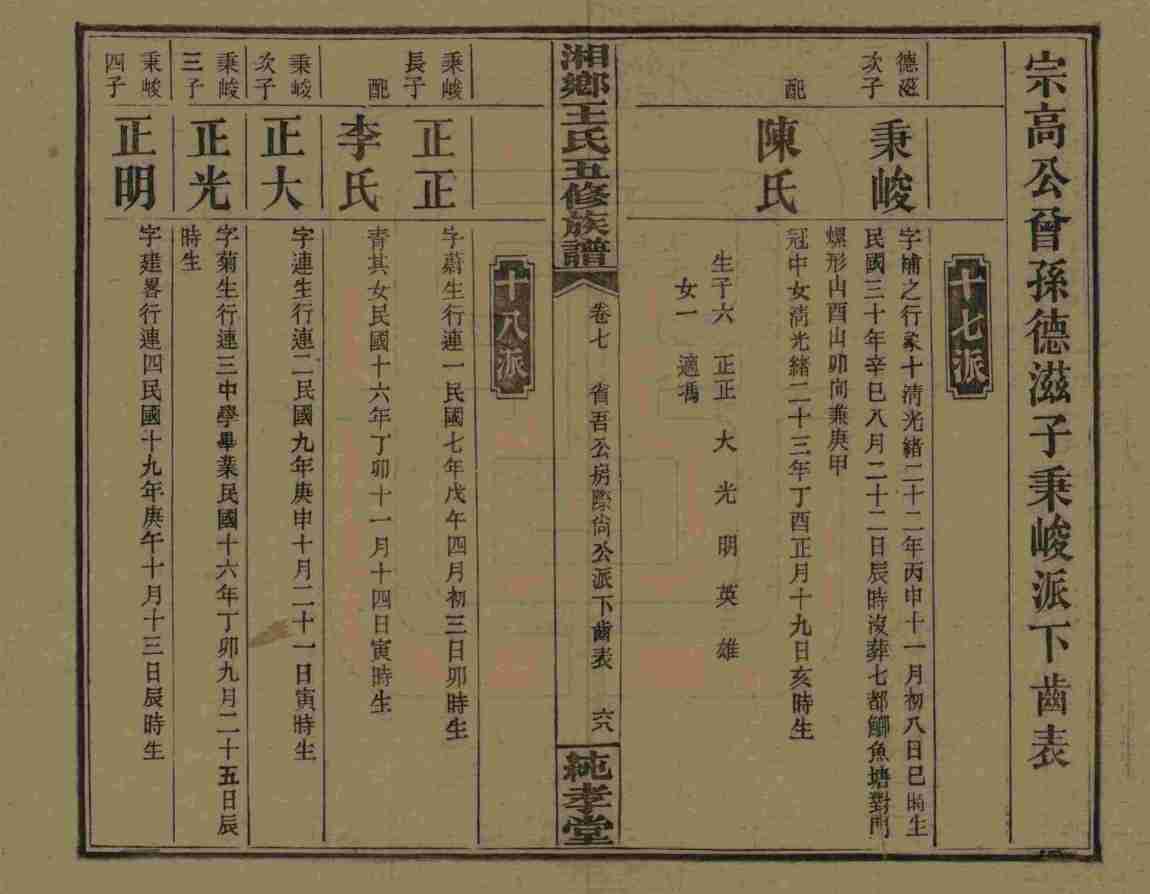 宗高公曾孫德滋子秉峻派下齒表
十七派
德滋
次子
秉峻
字補之行家十清光緒二十二年丙申十一月初八日巳時生
民國三十年辛巳八月二十二日辰時沒葬七都鰤魚塘對門
螺形山酉山卯向兼庚甲
配
陳氏
冠中女清光緒二十三年丁酉正月十九日亥時生
生子六 正正 大 光 明 英 雄
女一 適馮
湘鄉王氏五修族譜
卷七 省吾公房際尙公派下齒表 六八
純孝堂
十八派
秉峻
長子
正正
字蔚生行連一民國七年戊午四月初三日卯時生
配
李氏
青其女民國十六年丁卯十一月十四日寅時生
秉峻
次子
正大
字連生行連二民國九年庚申十月二十一日寅時生
秉峻
三子
正光
字菊生行連三中學畢業民國十六年丁卯九月二十五日辰
時生
秉峻
四子
正明
字建畧行連四民國十九年庚午十月十三日辰時生